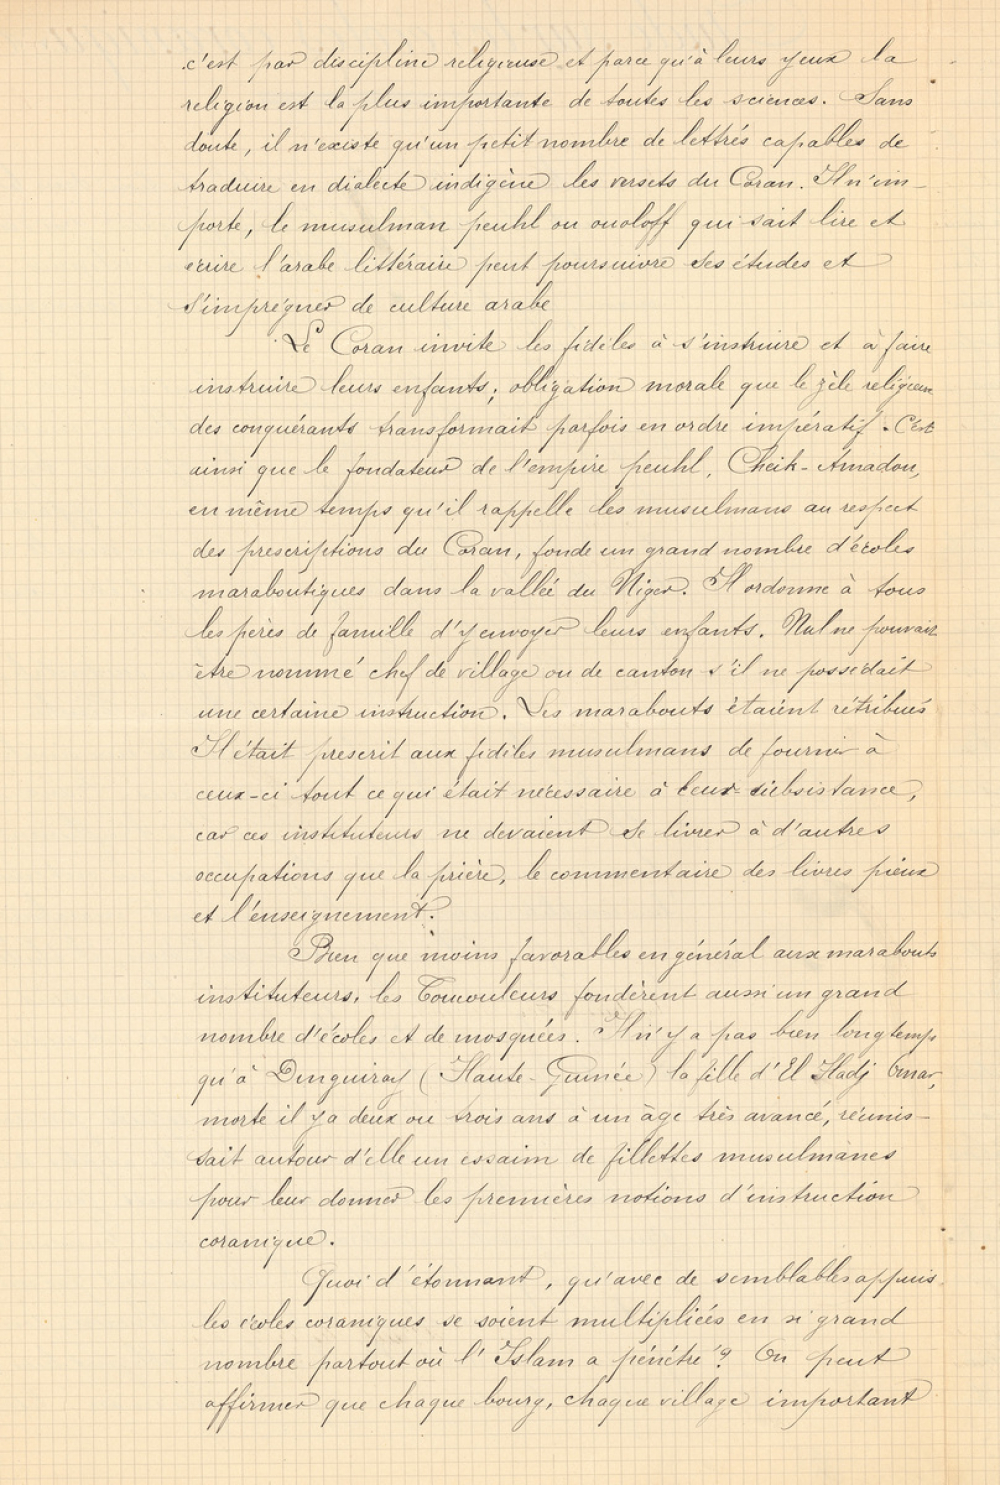 c'est par discipline religieuse et parce qu'à leurs yeux la
religion est la plus importante de toutes les sciences. Sans
doute, il n'existe qu'un petit nombre de lettrés capables de
traduire en dialecte indigène les versets du Coran. Il n'im-
porte, le musulman peuhl ou ouoloff qui sait lire et
écrire l'arabe littéraire peut poursuivre ses études et
s'imprégner de culture arabe
Le Coran invite les fidèles à s'instruire et à faire
instruire leurs enfants; obligation morale que le zèle religieux
des conquérants transformait parfois en ordre impératif. C'est
ainsi que le fondateur de l'empire peuhl, Cheik-Amadou,
en même temps qu'il rappelle les musulmans au respect
des prescriptions du Coran, fonde un grand nombre d'écoles
maraboutiques dans la vallée du Niger. Il ordonne à tous
les pères de famille d'y envoyer leurs enfants. Nul ne pouvait
être nommé chef de village ou de canton s'il ne possédait
une certaine instruction. Les marabouts étaient rétribués
Il était prescrit aux fidèles musulmans de fournir à
ceux-ci tout ce qui était nécessaire à leur subsistance,
car ces instituteurs ne devaient se livrer à d'autres
occupations que la prière, le commentaire des livres pieux
et l'enseignement.
Bien que moins favorables en général aux marabouts
instituteurs, les Toucouleurs fondèrent aussi un grand
nombre d'écoles et de mosquées. Il n'y a pas bien longtemps
qu'à Dinguiray (Haute-Guinée) la fille d'El Hadj Omar,
morte il y a deux ou trois ans à un âge très avancé, réunis-
sait autour d'elle un essaim de fillettes musulmanes
pour leur donner les premières notions d'instruction
coranique.
Quoi d'étonnant, qu'avec de semblables appuis
les écoles coraniques se soient multipliées en si grand
nombre partout où l'Islam a pénétré? On peut
affirmer que chaque bourg, chaque village important